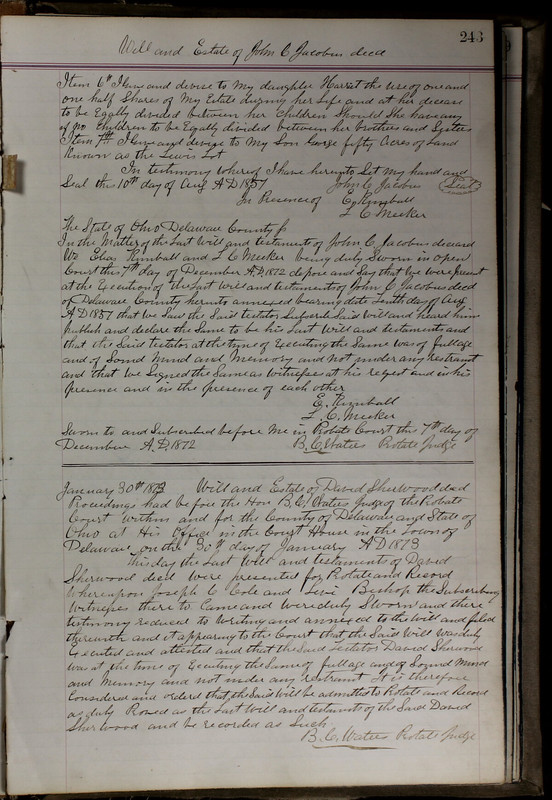 243
Will and Estate of John C Jacobus decd
Item 6th I Give and devise to my daughter Harriet the use of one and
one half Shares of My Estate during her Life and at her decease
to be Egally divided between her Children Should She have any
if no Children to be Egally divided between her brothers and Sisters
Item 7th I Give and devise to My Son George fifty Acres of Land
Known as the Lewis Lot
In testimony whereof I have hereunto Set my hand and
Seal this 10th day of Aug A.D 1857 John C Jacobus Seal
In Presence of E. Kimball
L. C. Meeker
The State of Ohio Delaware County ss
In the Matter of the Last Will and testament of John C. Jacobus deceasd
We Elias Kimball and L. C. Meeker being duly Sworn in open
Court this 7th day of December A.D. 1872 depose and Say that we were present
at the Execution of the Last Will and testament of John C Jacobus decd
of Delaware County hereunto annexed bearing date tenth day of Aug
A D 1857 that we Saw the Said testator Subscribe Said Will and heard him
publish and declare the Same to be his Last Will and testament and
that the Said testator at the time of Executing the Same was of full age
and of Sound Mind and Memory and not under any restraint
and that we Signed the Same as Witnesses at his request and in his
presence and in the presence of each other
E. Kimball
L. C. Meeker
Sworn to and Subscribed before Me in Probate Court this 7th day of
December A.D. 1872 B. C. Waters Probate Judge
January 30th 1873 Will and Estate of David Sherwood decd
Proceedings had before the Hon B. C. Waters Judge of the Probate
Court within and for the County of Delaware and State of
Ohio at His Office in the Court House in the town of
Delaware on the 30th day of January A D 1873
This day the Last Will and testament of David
Sherwood decd Were presented for Probate and Record
Whereupon Joseph C. Cole and Levi Bishop the Subscribing
Witnesses there to Came and Were duly Sworn and there
testimony reduced to Writing and annexed to the Will and filed
therewith and it appearing to the Court that the Said Will Was duly
Executed and attested and that the Said testator David Sherwood
Was at the time of Executing the Same of full age and of Sound Mind
and Memory and not under any restraint It is therefore
Considered and ordered that the Said Will be admitted to Probate and Record
as duly Proved as the Last Will and testament of the Said David
Sherwood and be recorded as Such
B. C. Waters Probate Judge